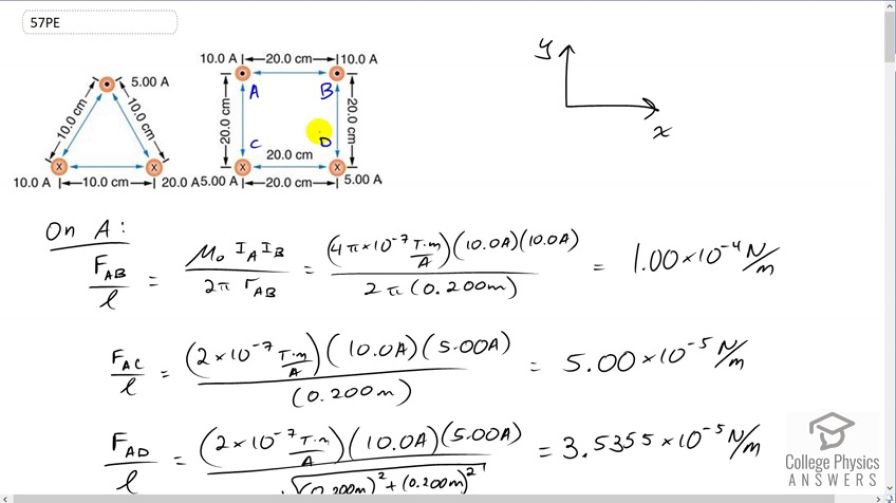 57PE
5.00 A
10.0 cm 10.0 cm
X X
10.0 A 10.0 cm 20.0 A
10.0 A 20.0 cm 10.0 A
A B
20.0 cm 20.0 cm
C D
20.0 cm
X X
5.00 A 20.0 cm 5.00 A
y
x
On A:
F_AB/l = μ₀ I_A I_B / 2π r_AB = (4π×10⁻⁷ T·m/A)(10.0A)(10.0A) / 2π(0.200m) = 1.00×10⁻⁴ N/m
F_AC/l = (2×10⁻⁷ T·m/A)(10.0A)(5.00A) / (0.200m) = 5.00×10⁻⁵ N/m
F_AD/l = (2×10⁻⁷ T·m/A)(10.0A)(5.00A) / √(0.200m)²+(0.200m)² = 3.5355×10⁻⁵ N/m
College Physics
ANSWERS